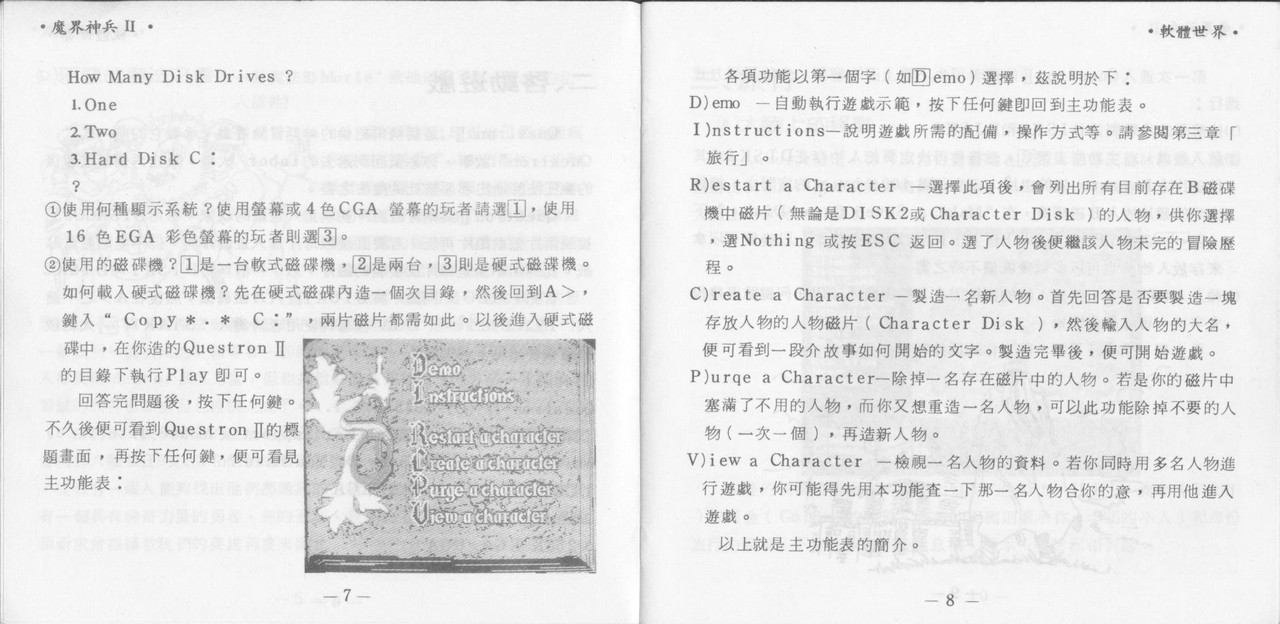 •魔界神兵 II •
How Many Disk Drives ?
1. One
2. Two
3. Hard Disk C：
?
①使用何種顯示系統？使用螢幕或4色CGA 螢幕的玩者請選1，使用
16色EGA 彩色螢幕的玩者則選3。
②使用的磁碟機？1是一台軟式磁碟機，2是兩台，3則是硬式磁碟機。
如何載入硬式磁碟機？先在硬式磁碟內造一個次目錄，然後回到A>，
鍵入“ Copy *．* C：”，兩片磁片都需如此。以後進入硬式磁
碟中，在你造的Questron II
的目錄下執行Play 即可。
回答完問題後，按下任何鍵。
不久後便可看到Questron II的標
題畫面，再按下任何鍵，便可看見
主功能表：
Demo
Instructions
Restart a character
Create a character
Purge a character
View a character
— 7 —
•軟體世界•
各項功能以第一個字（如Demo）選擇，茲說明於下：
D)emo —自動執行遊戲示範，按下任何鍵即回到主功能表。
I)nstructions—說明遊戲所需的配備，操作方式等。請參閱第三章「
旅行」。
R)estart a Character —選擇此項後，會列出所有目前存在B磁碟
機中磁片（無論是DISK2或Character Disk）的人物，供你選擇
，選Nothing 或按ESC 返回。選了人物後便繼該人物未完的冒險歷
程。
C)reate a Character —製造一名新人物。首先回答是否要製造一塊
存放人物的人物磁片（Character Disk ），然後輸入人物的大名，
便可看到一段介故事如何開始的文字。製造完畢後，便可開始遊戲。
P)urqe a Character—除掉一名存在磁片中的人物。若是你的磁片中
塞滿了不用的人物，而你又想重造一名人物，可以此功能除掉不要的人
物（一次一個），再造新人物。
V)iew a Character —檢視一名人物的資料。若你同時用多名人物進
行遊戲，你可能得先用本功能查一下那一名人物合你的意，再用他進入
遊戲。
以上就是主功能表的簡介。
— 8 —